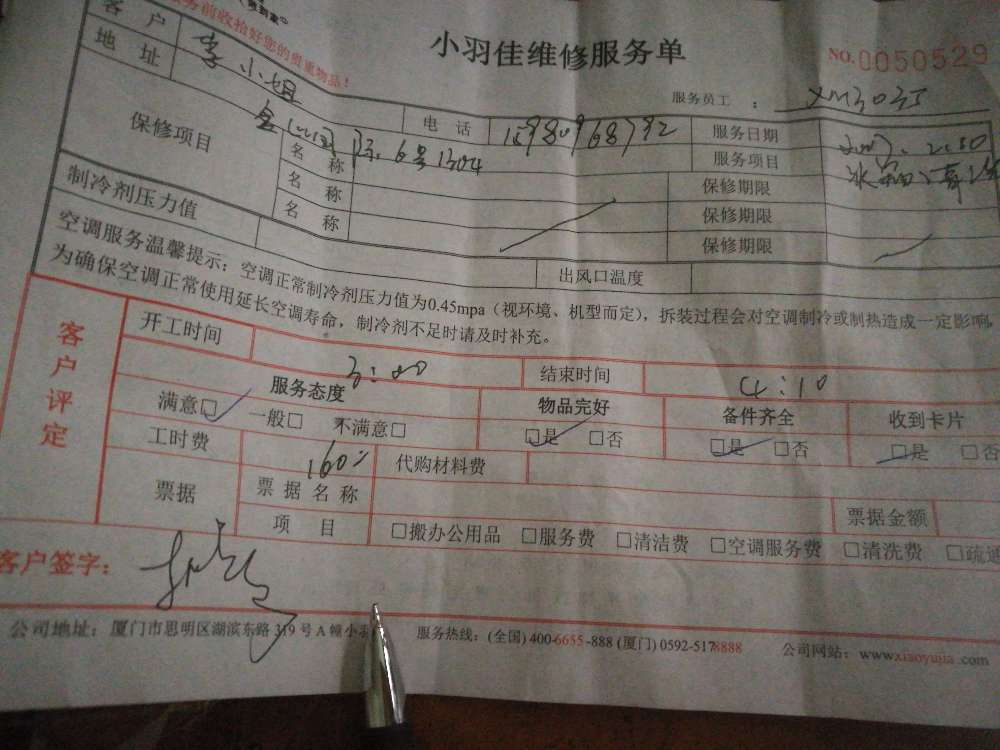 服务前收拾好您的贵重物品！
小羽佳维修服务单
NO.0050529
服务员工：
客户 李小姐 电话 服务日期
地址 6号1304 服务项目
保修项目 名称 保修期限
名称 保修期限
名称 保修期限
制冷剂压力值 出风口温度
空调服务温馨提示：空调正常制冷剂压力值为0.45mpa（视环境、机型而定），拆装过程会对空调制冷或制热造成一定影响，
为确保空调正常使用延长空调寿命，制冷剂不足时请及时补充。
客户评定
开工时间 3:00 结束时间 4:10
服务态度 物品完好 备件齐全 收到卡片
满意□ 一般□ 不满意□ □是 □否 □是 □否 □是 □否
工时费 160 代购材料费
票据 票据名称 票据金额
项目 □搬办公用品 □服务费 □清洁费 □空调服务费 □清洗费 □疏通
客户签字：
公司地址：厦门市思明区湖滨东路319号A幢小羽 服务热线：(全国) 400-6655-888 (厦门) 0592-5178888 公司网站：www.xiaoyujia.com